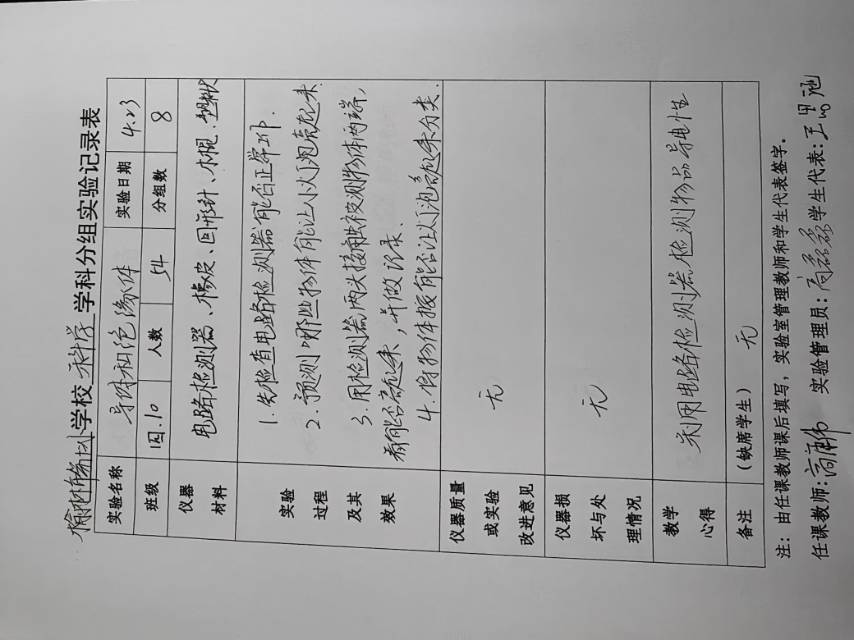 学校 科学 学科分组实验记录表
实验名称 导体和绝缘体 实验日期 4.23
班级 四.10 人数 54 分组数 8
仪器材料 电路检测器、橡皮、回形针、木棍、塑料
实验过程及其效果
1. 先检查电路检测器能否正常工作.
2. 预测哪些物体能让小灯泡亮起来.
3. 用检测器两头接触被测物体两端,
看能否亮起来,并做记录.
4. 将物体按能否让灯泡亮起来分类.
仪器质量或实验改进意见 无
仪器损坏与处理情况 无
教学心得 利用电路检测器检测物品导电性
备注 (缺席学生) 无
注:由任课教师课后填写,实验室管理教师和学生代表签字。
任课教师: 实验管理员: 学生代表: